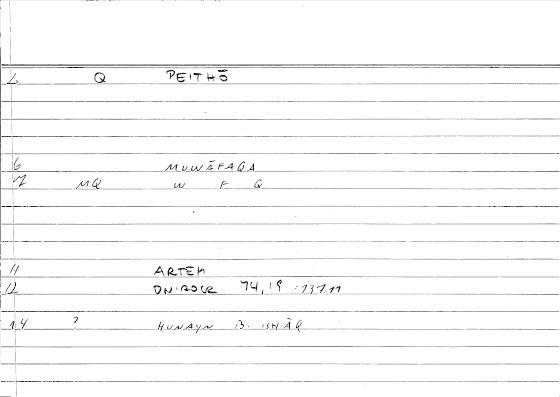 L Q PEITHŌ
6 MUWĀFAQA
7 MQ W F Q
11 ARTEM
12 74,19
14 ? HUNAYN B. ISHĀQ